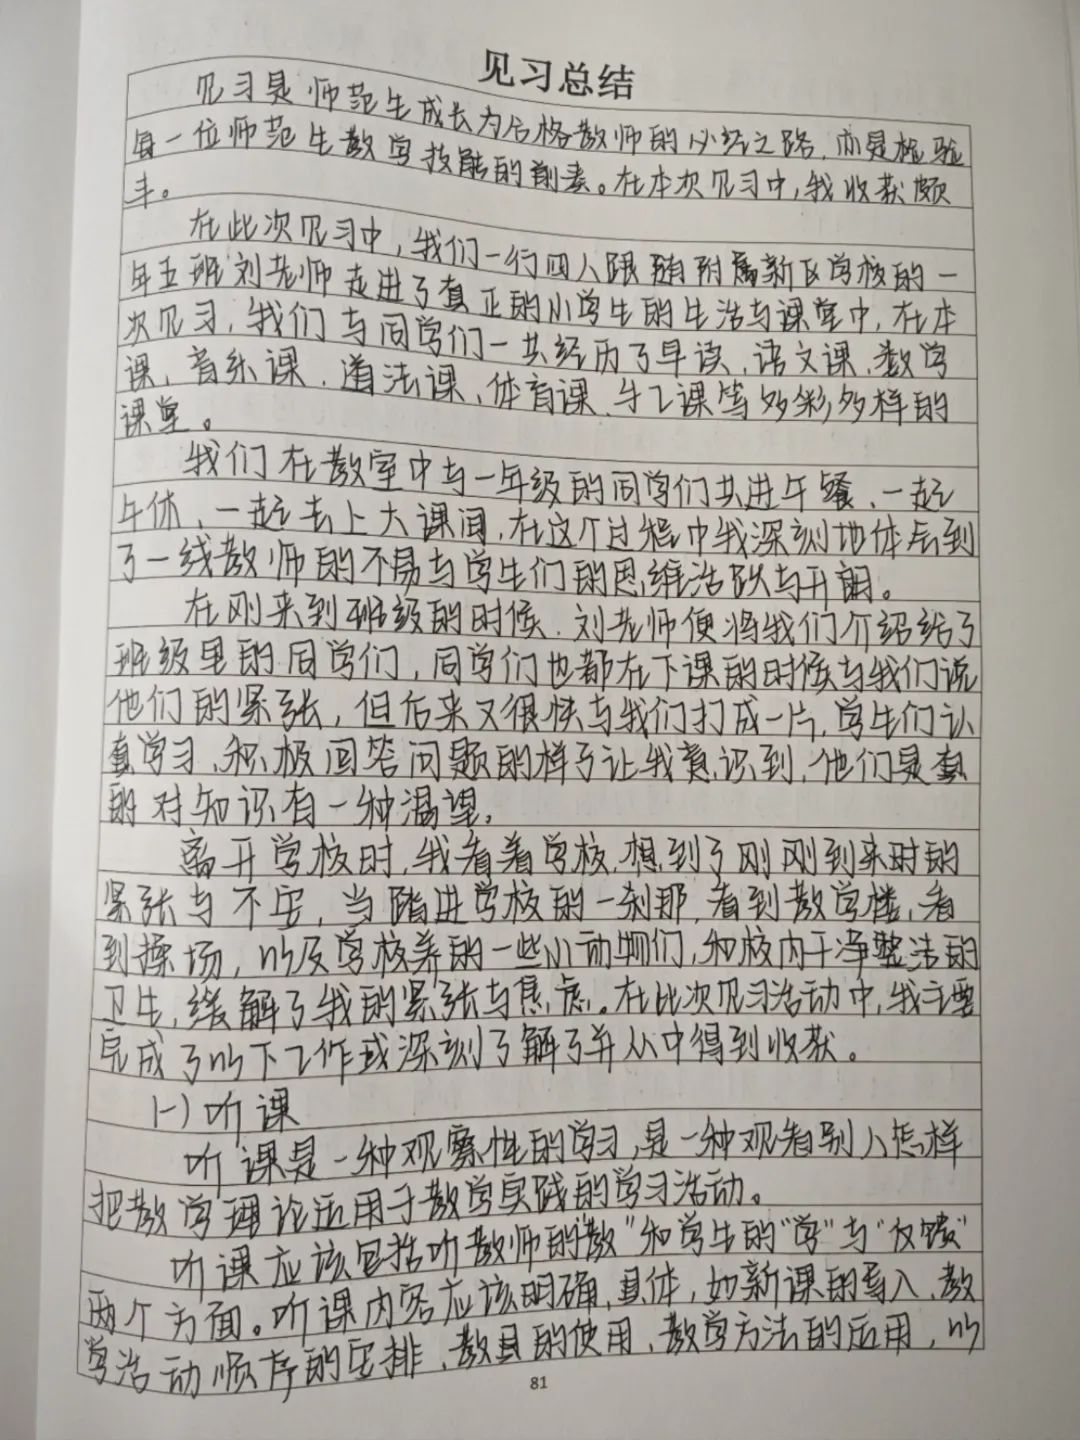 见习总结
见习是师范生成长为合格教师的必经之路，亦是检验
每一位师范生教学技能的前奏。在本次见习中，我收获颇
丰。
在此次见习中，我们一行四人跟随附属新区学校的一
年五班刘老师走进了真正的小学生的生活与课堂中，在本
次见习，我们与同学们一共经历了早读、语文课、数学
课、音乐课、道法课、体育课、手工课等多彩多样的
课堂。
我们在教室中与一年级的同学们共进午餐、一起
午休、一起去上大课间，在这个过程中我深刻地体会到
了一线教师的不易与学生们的思维活跃与开朗。
在刚来到班级的时候，刘老师便将我们介绍给了
班级里的同学们，同学们也都在下课的时候与我们说
他们的紧张，但后来又很快与我们打成一片，学生们认
真学习、积极回答问题的样子让我意识到，他们是真
的对知识有一种渴望，
离开学校时，我看着学校，想到了刚刚到来时的
紧张与不安，当踏进学校的一刹那，看到教学楼，看
到操场，以及学校养的一些小动物们，和校内干净整洁的
卫生，缓解了我的紧张与焦虑。在此次见习活动中，我主要
完成了以下工作或深刻了解了并从中得到收获。
(一)听课
听课是一种观察性的学习，是一种观看别人怎样
把教学理论运用于教学实践的学习活动。
听课应该包括听教师的"教"和学生的"学"与"反馈"
两个方面。听课内容应该明确、具体，如新课的导入、教
学活动顺序的安排、教具的使用、教学方法的应用，以
81